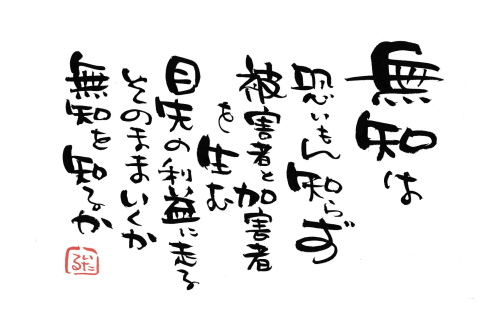 無知は
恐いもん知らず
被害者と加害者
を生む
目先の利益に走る
そのままいくか
無知を知るか